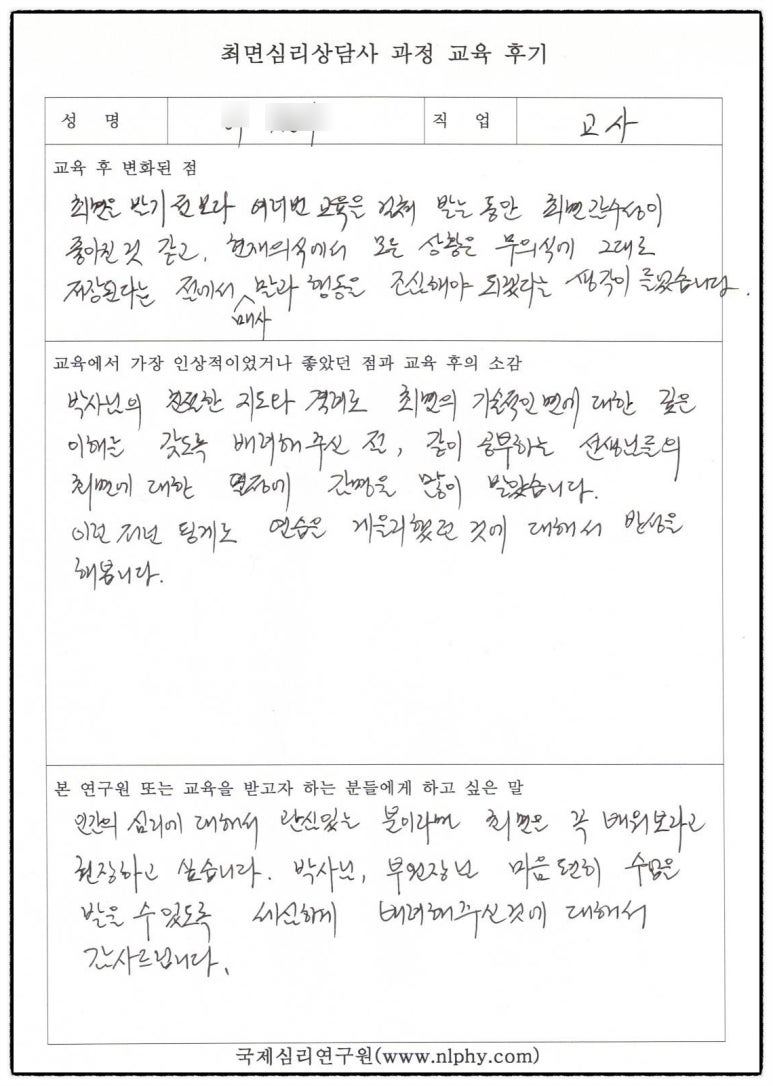 최면심리상담사 과정 교육 후기
성 명
직 업 교사
교육 후 변화된 점
최면을 받기 전보다 여러번 교육을 걸쳐 받는 동안 최면감수성이
좋아진 것 같고, 현재의식에서 모든 상황은 무의식에 그대로
저장된다는 점에서 매사 말과 행동을 조심해야 되겠다는 생각이 들었습니다.
교육에서 가장 인상적이었거나 좋았던 점과 교육 후의 소감
박사님의 친절한 지도와 격려로 최면의 기술적인 면에 대한 깊은
이해를 갖도록 배려해 주신 점, 같이 공부하는 선생님들의
최면에 대한 열정에 감명을 많이 받았습니다.
이런 저런 핑계로 연습을 게을리했던 것에 대해서 반성을
해봅니다.
본 연구원 또는 교육을 받고자 하는 분들에게 하고 싶은 말
인간의 심리에 대해서 관심있는 분이라면 최면은 꼭 배워보라고
권장하고 싶습니다. 박사님, 부원장님 마음 편히 수업을
받을 수 있도록 세심하게 배려해주신것에 대해서
감사드립니다.
국제심리연구원(www.nlphy.com)